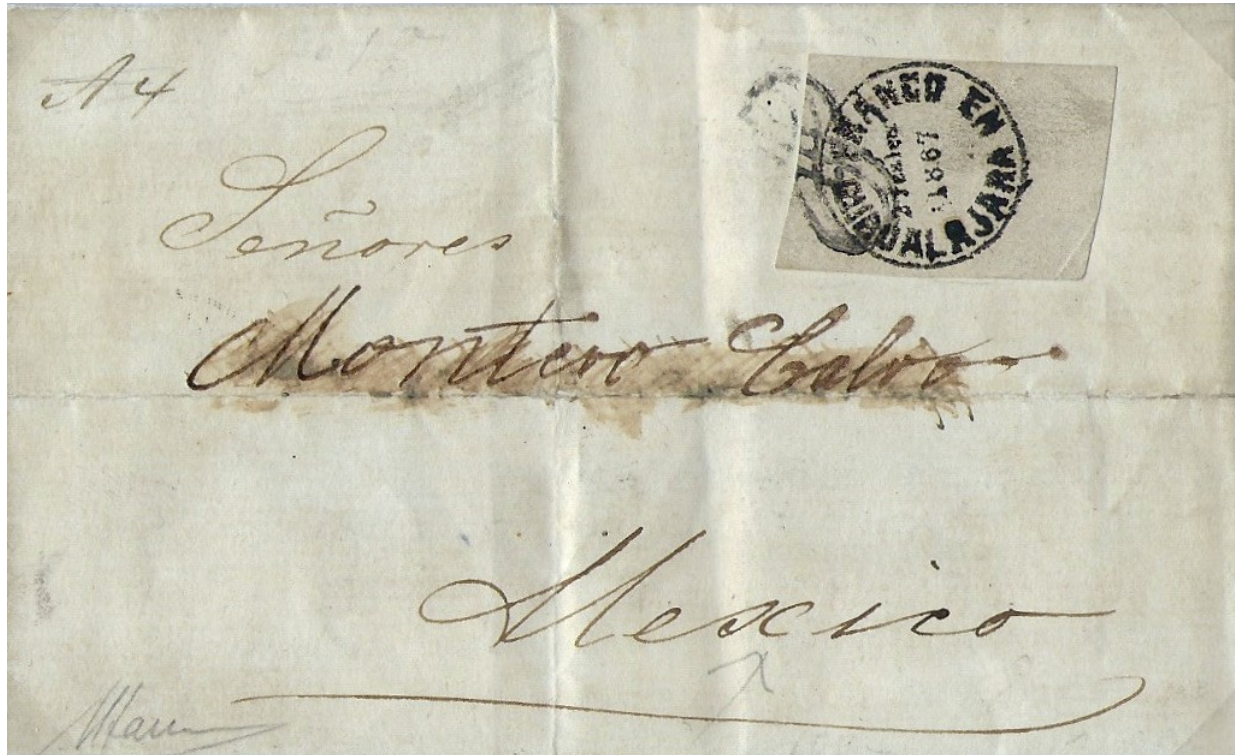 FRANCO EN
GUADALAJARA
1867
Señores
Montero Calvo
Mexico